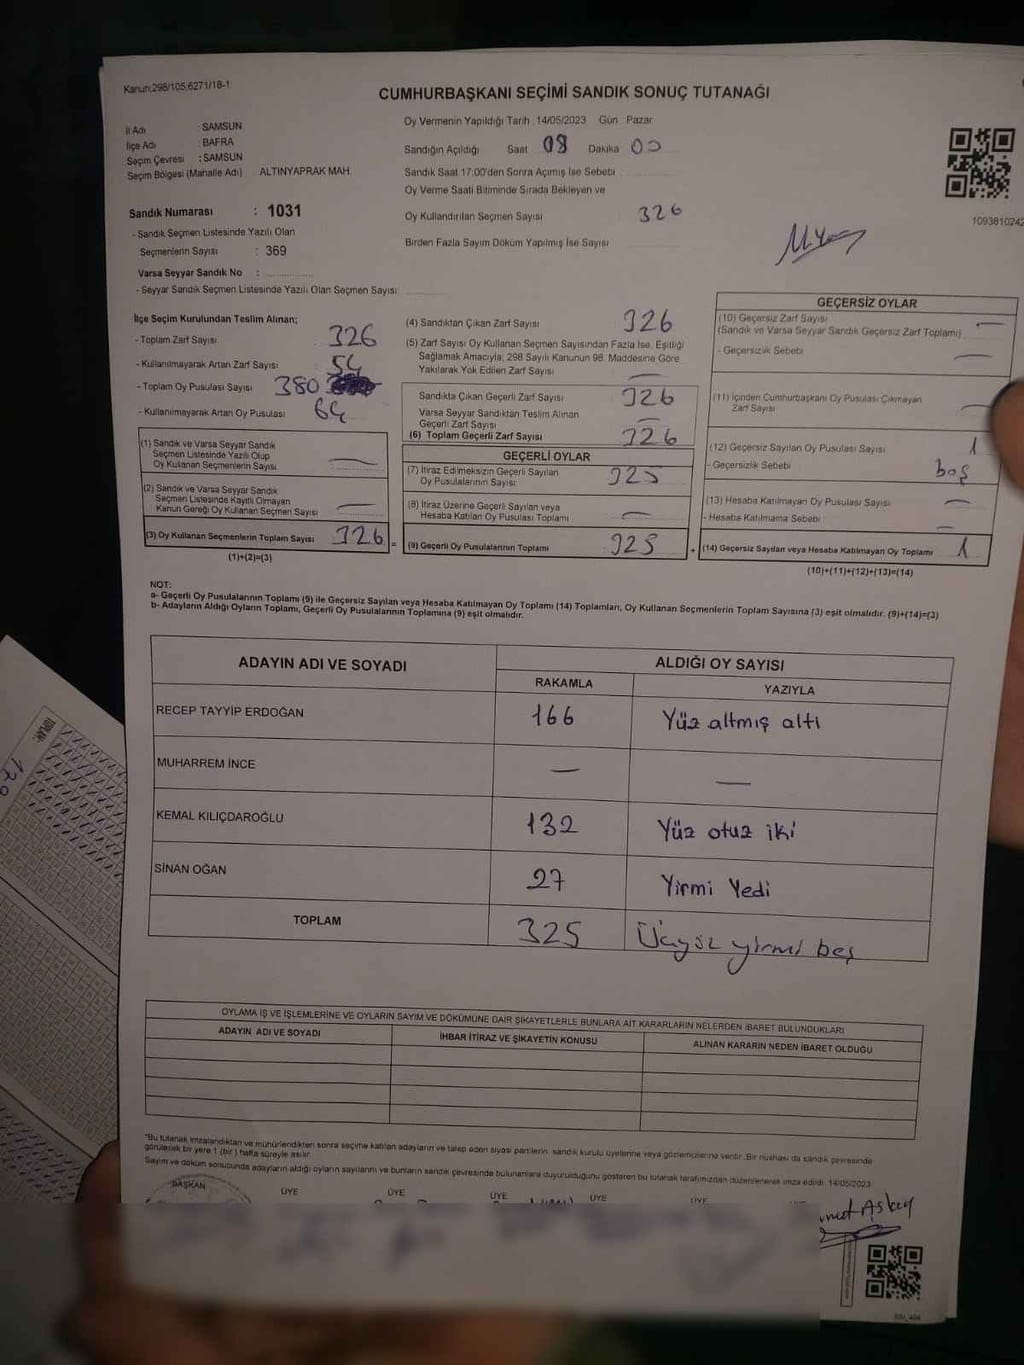 Kanun;298/105;6271/18-1
CUMHURBAŞKANI SEÇİMİ SANDIK SONUÇ TUTANAĞI
İl Adı : SAMSUN
İlçe Adı : BAFRA
Seçim Çevresi : SAMSUN
Seçim Bölgesi (Mahalle Adı) ALTINYAPRAK MAH.
Sandık Numarası : 1031
- Sandık Seçmen Listesinde Yazılı Olan
Seçmenlerin Sayısı : 369
Varsa Seyyar Sandık No :
- Seyyar Sandık Seçmen Listesinde Yazılı Olan Seçmen Sayısı:
Oy Vermenin Yapıldığı Tarih : 14/05/2023 Gün : Pazar
Sandığın Açıldığı Saat 08 Dakika 00
Sandık Saat 17:00'den Sonra Açımış İse Sebebi
Oy Verme Saati Bitiminde Sırada Bekleyen ve
Oy Kullandırılan Seçmen Sayısı 326
Birden Fazla Sayım Döküm Yapılmış İse Sayısı
1093810242
İlçe Seçim Kurulundan Teslim Alınan;
- Toplam Zarf Sayısı 326
- Kullanılmayarak Artan Zarf Sayısı 54
- Toplam Oy Pusulası Sayısı 380
- Kullanılmayarak Artan Oy Pusulası 64
(1) Sandık ve Varsa Seyyar Sandık
Seçmen Listesinde Yazılı Olup
Oy Kullanan Seçmenlerin Sayısı —
(2) Sandık ve Varsa Seyyar Sandık
Seçmen Listesinde Kayıtlı Olmayan
Kanun Gereği Oy Kullanan Seçmen Sayısı —
(3) Oy Kullanan Seçmenlerin Toplam Sayısı 326
(1)+(2)=(3)
(4) Sandıktan Çıkan Zarf Sayısı 326
(5) Zarf Sayısı Oy Kullanan Seçmen Sayısından Fazla İse, Eşitliği
Sağlamak Amacıyla, 298 Sayılı Kanunun 98. Maddesine Göre
Yakılarak Yok Edilen Zarf Sayısı —
Sandıkta Çıkan Geçerli Zarf Sayısı 326
Varsa Seyyar Sandıktan Teslim Alınan
Geçerli Zarf Sayısı —
(6) Toplam Geçerli Zarf Sayısı 326
GEÇERLİ OYLAR
(7) İtiraz Edilmeksizin Geçerli Sayılan
Oy Pusulalarının Sayısı 325
(8) İtiraz Üzerine Geçerli Sayılan veya
Hesaba Katılan Oy Pusulası Toplamı —
= (9) Geçerli Oy Pusulalarının Toplamı 325
GEÇERSİZ OYLAR
(10) Geçersiz Zarf Sayısı —
(Sandık ve Varsa Seyyar Sandık Geçersiz Zarf Toplamı)
- Geçersizlik Sebebi —
(11) İçinden Cumhurbaşkanı Oy Pusulası Çıkmayan
Zarf Sayısı —
(12) Geçersiz Sayılan Oy Pusulası Sayısı 1
- Geçersizlik Sebebi boş
(13) Hesaba Katılmayan Oy Pusulası Sayısı —
- Hesaba Katılmama Sebebi —
+ (14) Geçersiz Sayılan veya Hesaba Katılmayan Oy Toplamı 1
(10)+(11)+(12)+(13)=(14)
NOT:
a- Geçerli Oy Pusulalarının Toplamı (9) ile Geçersiz Sayılan veya Hesaba Katılmayan Oy Toplamı (14) Toplamları, Oy Kullanan Seçmenlerin Toplam Sayısına (3) eşit olmalıdır. (9)+(14)=(3)
b- Adayların Aldığı Oyların Toplamı, Geçerli Oy Pusulalarının Toplamına (9) eşit olmalıdır.
ADAYIN ADI VE SOYADI ALDIĞI OY SAYISI
RAKAMLA YAZIYLA
RECEP TAYYİP ERDOĞAN 166 Yüz altmış altı
MUHARREM İNCE — —
KEMAL KILIÇDAROĞLU 132 Yüz otuz iki
SİNAN OĞAN 27 Yirmi Yedi
TOPLAM 325 Üçyüz yirmi beş
OYLAMA İŞ VE İŞLEMLERİNE VE OYLARIN SAYIM VE DÖKÜMÜNE DAİR ŞİKAYETLERLE BUNLARA AİT KARARLARIN NELERDEN İBARET BULUNDUKLARI
ADAYIN ADI VE SOYADI İHBAR İTİRAZ VE ŞİKAYETİN KONUSU ALINAN KARARIN NEDEN İBARET OLDUĞU
*Bu tutanak imzalandıktan ve mühürlendikten sonra seçime katılan adayların ve talep eden siyasi partilerin sandık kurulu üyelerine veya gözlemcilerine verilir. Bir nushası da sandık çevresinde
görülecek bir yere 1 (bir) hafta süreyle asılır.
Sayım ve döküm sonucunda adayların aldığı oyların sayılarını ve bunların sandık çevresinde bulunanlara duyurulduğunu gösteren bu tutanak tarafımızdan düzenlenerek imza edildi. 14/05/2023
BAŞKAN ÜYE ÜYE ÜYE ÜYE ÜYE
TOPLAM: